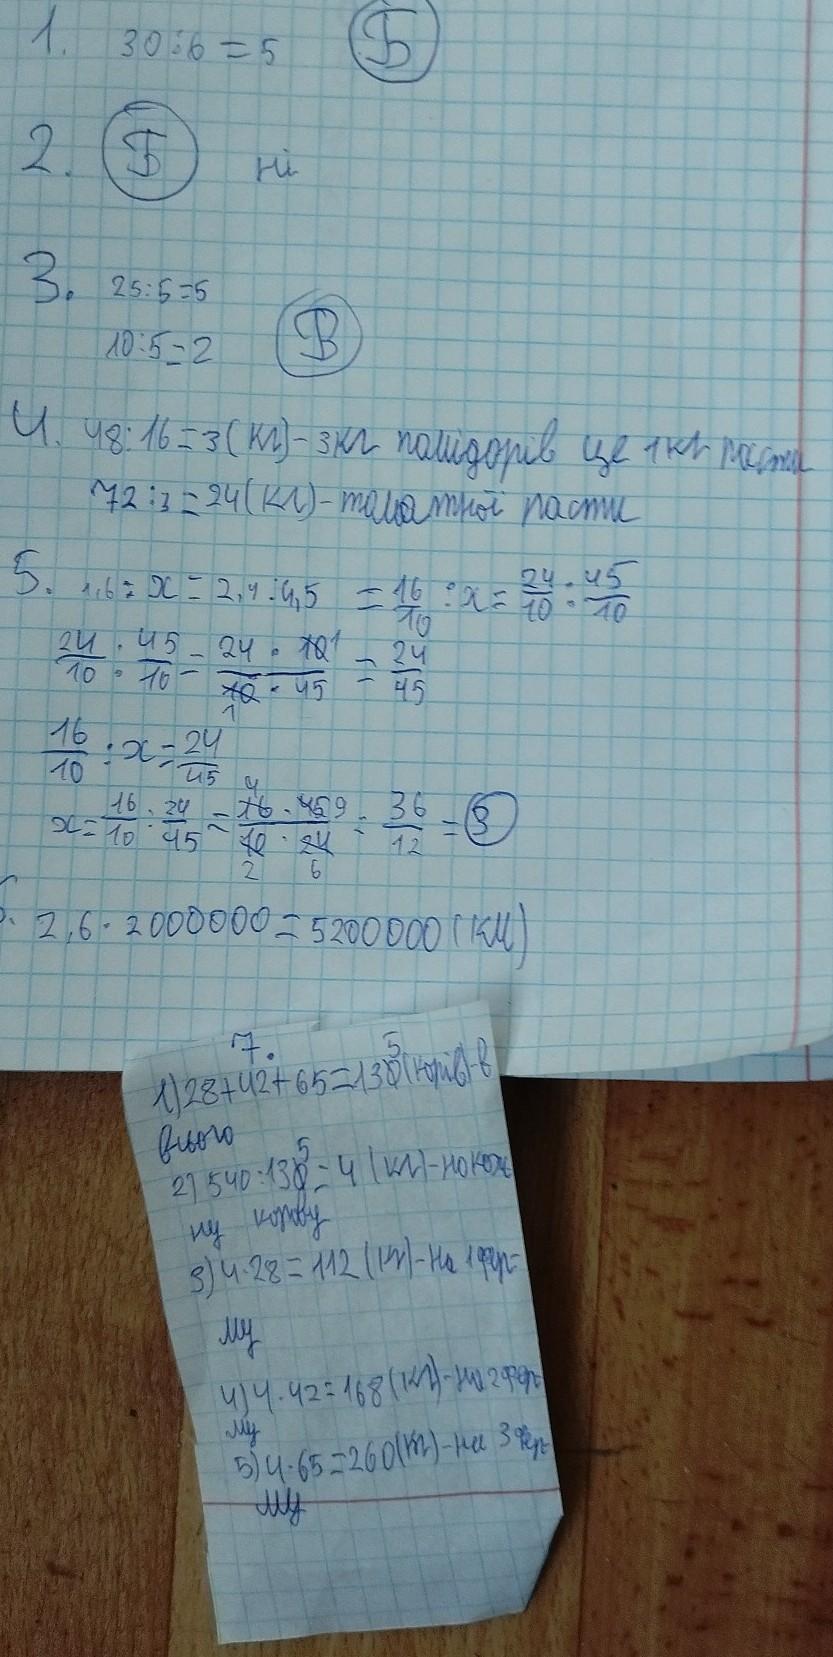 1. 30:6=5 Б
2. Б ні
3. 25:5=5
10:5=2 В
4. 48:16=3(кг)-3кг помідорів це 1кг пасти
72:3=24(кг)-томатної пасти
5. 1,6:x=2,4:4,5 = 16/10 : x = 24/10 : 45/10
24/10 : 45/10 = 24·10 1/10·45 1 = 24/45
16/10 : x = 24/45
x = 16/10 : 24/45 = 4 16·45 9/10·24 2 6 = 36/12 = 3
2,6·2000000=5200000(км)
7.
1)28+42+65=135(корів)-в
всього
2)540:135=4(кг)-на кож
ну корову
3)4·28=112(кг)-на 1 фер-
му
4)4·42=168(кг)-на 2 фер-
му
5)4·65=260(кг)-на 3 фер-
му